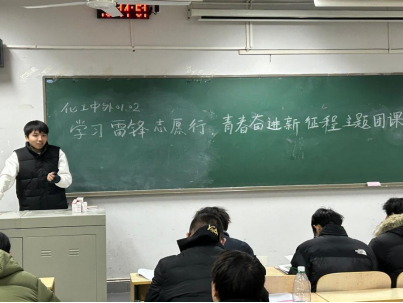 化工中外01.02
学习雷锋志愿行,青春奋进新征程主题团课